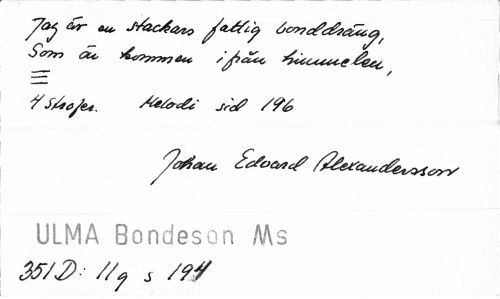 Jag är en stackars fattig bonddräng,
Som är kommen ifrån himmelen,
4 strofer. Melodi sid 196
Johan Edvard Alexandersson
ULMA Bondeson Ms
351 D: 11 q s 194